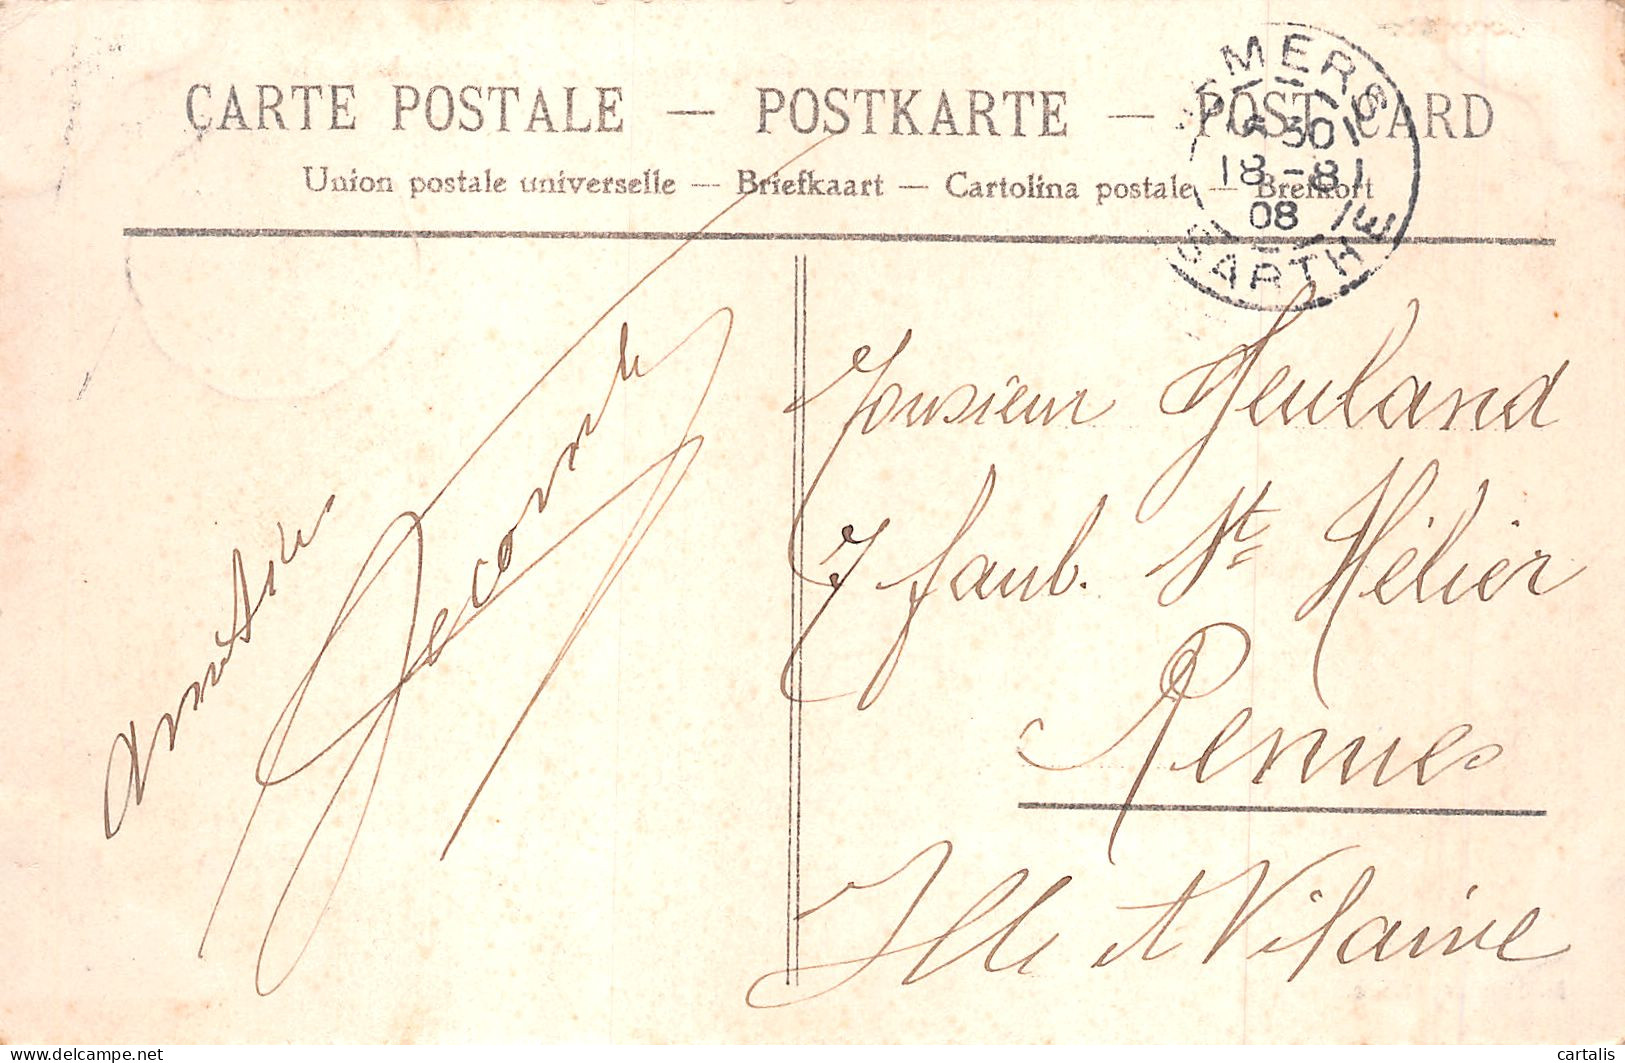 CARTE POSTALE — POSTKARTE — POST CARD
Union postale universelle — Briefkaart — Cartolina postale — Brefkort
MAMERS
18-8
08
SARTHE
Monsieur Feuland
7 faub. St Hélier
Rennes
Ille et Vilaine
Amitiés
Lecomte
delcampe.net
cartalis